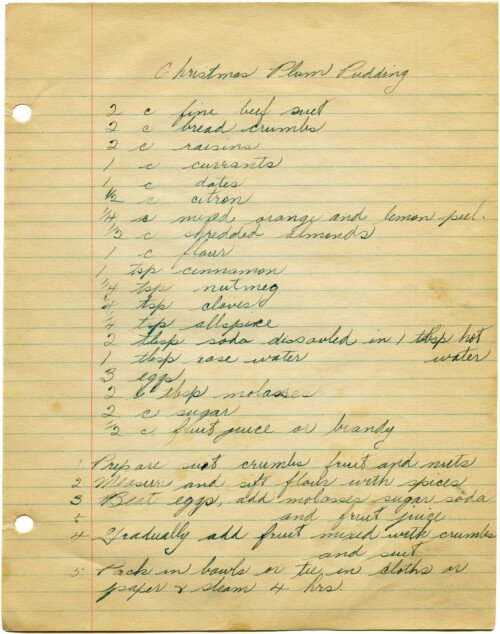 Christmas Plum Pudding
2 c fine beef suet
2 c bread crumbs
2 c raisins
1 c currants
1 c dates
1/2 c citron
1/4 c mixed orange and lemon peel.
1/2 c shredded almonds
1 c flour
1 tsp cinnamon
1/4 tsp nutmeg
1/4 tsp cloves
1/4 tsp allspice
2 tbsp soda dissovled in 1 tbsp hot
water
1 tbsp rose water
3 eggs
2 tbsp molasses
2 c sugar
1/2 c fruit juice or brandy
1. Prepare suet crumbs fruit and nuts
2. Measure and sift flour with spices
3 Beat eggs, add molasses sugar soda
and fruit juice
4. Gradually add fruit mixed with crumbs
and suet
5. Pack in bowls or tie in cloths or
paper & steam 4 hrs